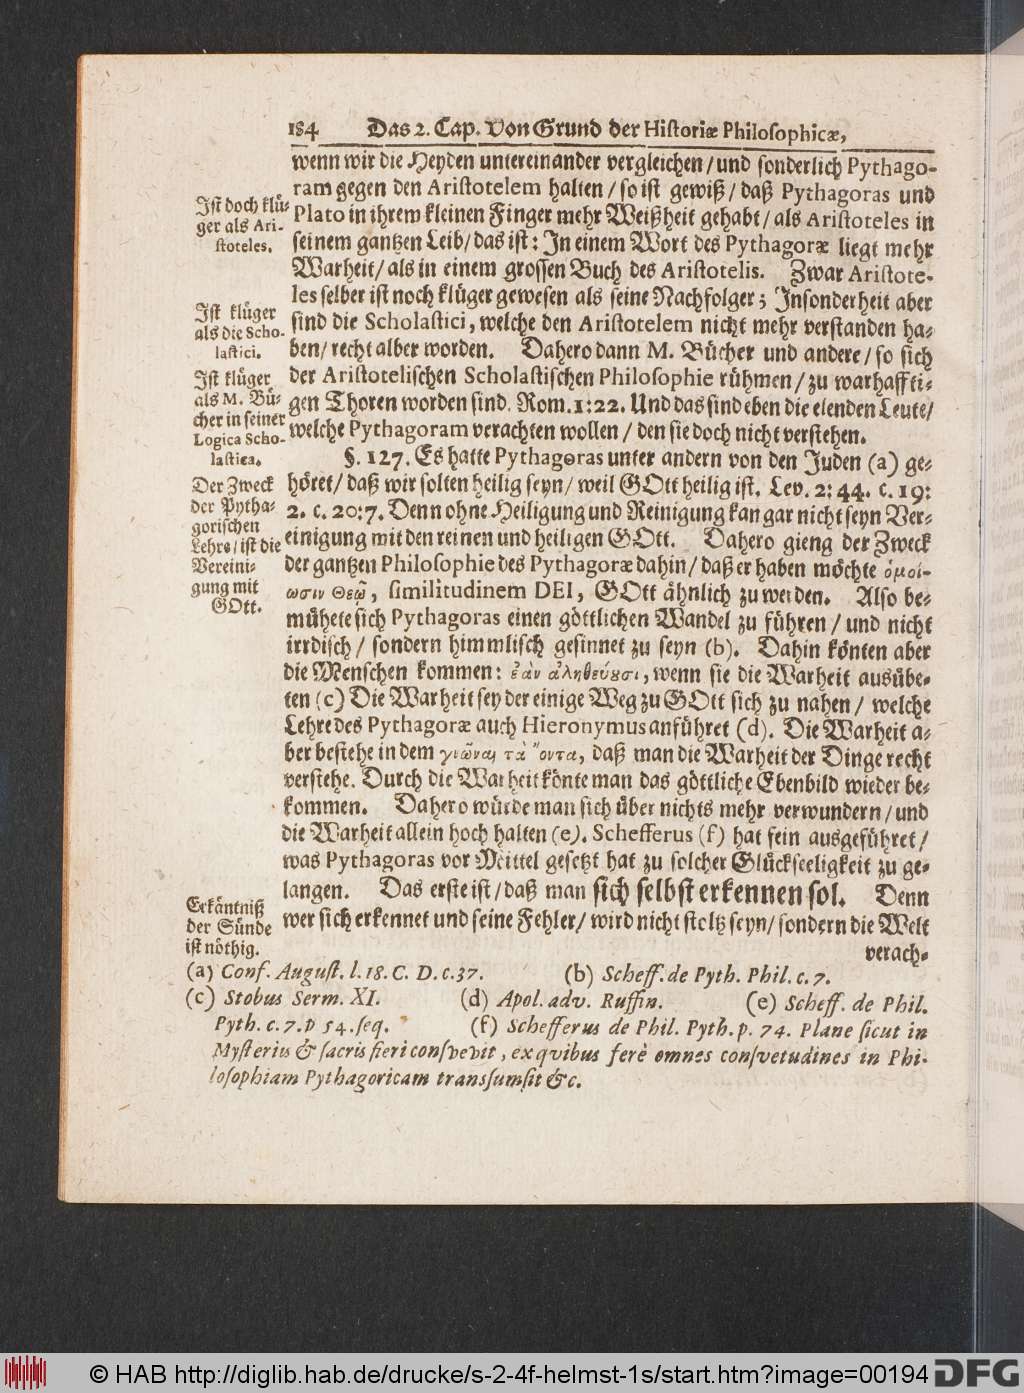 184 Das 2. Cap. Von Grund der Historiæ Philosophicæ,
wenn wir die Heyden untereinander vergleichen/ und sonderlich Pythago-
ram gegen den Aristotelem halten/ so ist gewiß/ daß Pythagoras und
Plato in ihrem kleinen Finger mehr Weißheit gehabt/ als Aristoteles in
seinem gantzen Leib/ das ist: In einem Wort des Pythagoræ liegt mehr
Warheit/ als in einem grossen Buch des Aristotelis. Zwar Aristote-
les selber ist noch klüger gewesen als seine Nachfolger; Insonderheit aber
sind die Scholastici, welche den Aristotelem nicht mehr verstanden ha-
ben/ recht alber worden. Dahero dann M. Bücher und andere/ so sich
der Aristotelischen Scholastischen Philosophie rühmen/ zu warhaffti-
gen Thoren worden sind. Rom. 1:22. Und das sind eben die elenden Leute/
welche Pythagoram verachten wollen/ den sie doch nicht verstehen.
Ist doch klü-
ger als Ari-
stoteles.
Ist klüger
als die Scho-
lastici.
Ist klüger
als M. Bü-
cher in seiner
Logica Scho-
lastica.
§. 127. Es hatte Pythagoras unter andern von den Juden (a) ge-
höret/ daß wir solten heilig seyn/ weil GOtt heilig ist. Lev. 2: 44. c. 19:
2. c. 20:7. Denn ohne Heiligung und Reinigung kan gar nicht seyn Ver-
einigung mit den reinen und heiligen GOtt. Dahero gieng der Zweck
der gantzen Philosophie des Pythagoræ dahin/ daß er haben möchte ὁμοί-
ωσιν Θεῷ, similitudinem DEI, GOtt ähnlich zu werden. Also be-
mühete sich Pythagoras einen göttlichen Wandel zu führen/ und nicht
irrdisch/ sondern himmlisch gesinnet zu seyn (b). Dahin könten aber
die Menschen kommen: ἐὰν ἀληθεύουσι, wenn sie die Warheit ausübe-
ten (c) Die Warheit sey der einige Weg zu GOtt sich zu nahen/ welche
Lehre des Pythagoræ auch Hieronymus anführet (d). Die Warheit a-
ber bestehe in dem γνῶναι τὰ ὄντα, daß man die Warheit der Dinge recht
verstehe. Durch die Warheit könte man das göttliche Ebenbild wieder be-
kommen. Dahero würde man sich über nichts mehr verwundern/ und
die Warheit allein hoch halten (e). Schefferus (f) hat fein ausgeführet/
was Pythagoras vor Mittel gesetzt hat zu solcher Glückseeligkeit zu ge-
langen. Das erste ist/ daß man sich selbst erkennen sol. Denn
wer sich erkennet und seine Fehler/ wird nicht stoltz seyn/ sondern die Welt
verach-
Der Zweck
der Pytha-
gorischen
Lehre/ ist die
Vereini-
gung mit
GOtt.
Erkäntniß
der Sünde
ist nöthig.
(a) Conf. August. l. 18. C. D. c. 37. (b) Scheff. de Pyth. Phil. c. 7.
(c) Stobus Serm. XI. (d) Apol. adv. Ruffin. (e) Scheff. de Phil.
Pyth. c. 7. p 54. seq. (f) Schefferus de Phil. Pyth. p. 74. Plane sicut in
Mysteriis & sacris fieri consvevit, ex qvibus ferè omnes consvetudines in Phi-
losophiam Pythagoricam transsumsit &c.
© HAB http://diglib.hab.de/drucke/s-2-4f-helmst-1s/start.htm?image=00194 DFG